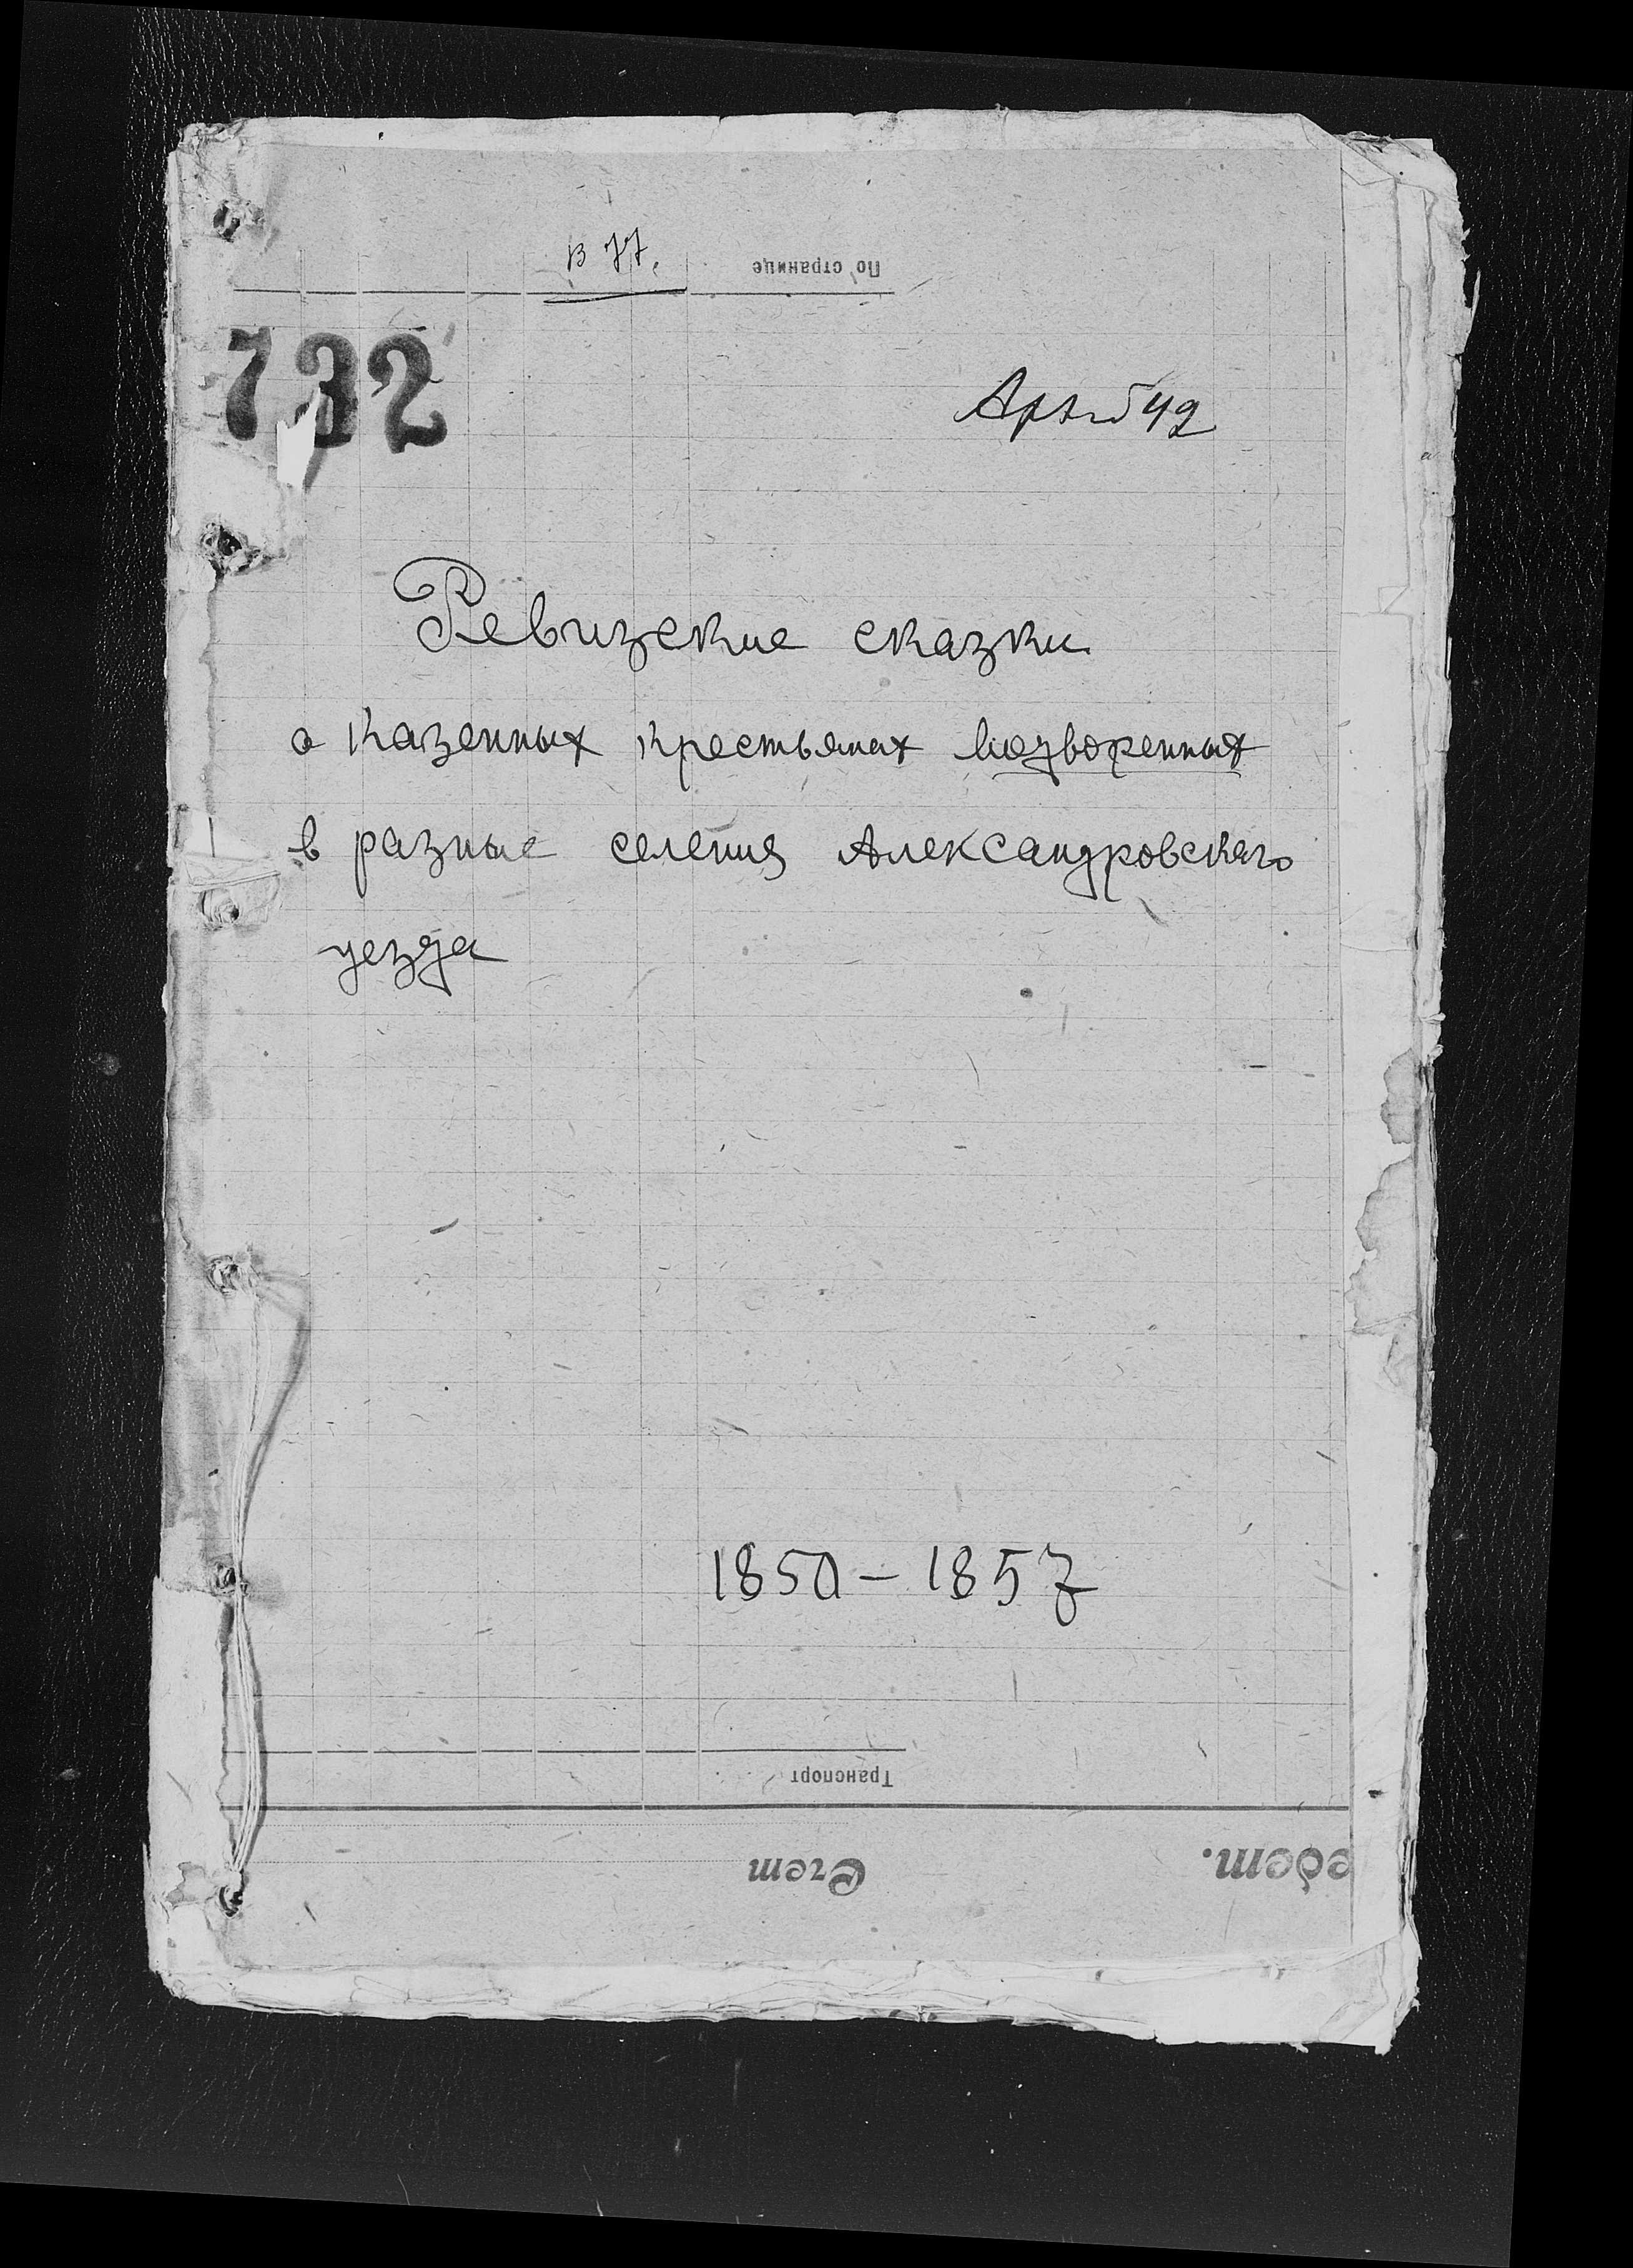 в 77.
По странице
732
Арх № 542
Ревизские сказки
о казенных крестьянах возворенных
в разные селения Александровскаго
уезда
1850-1857
Транспорт
Счет
едет.